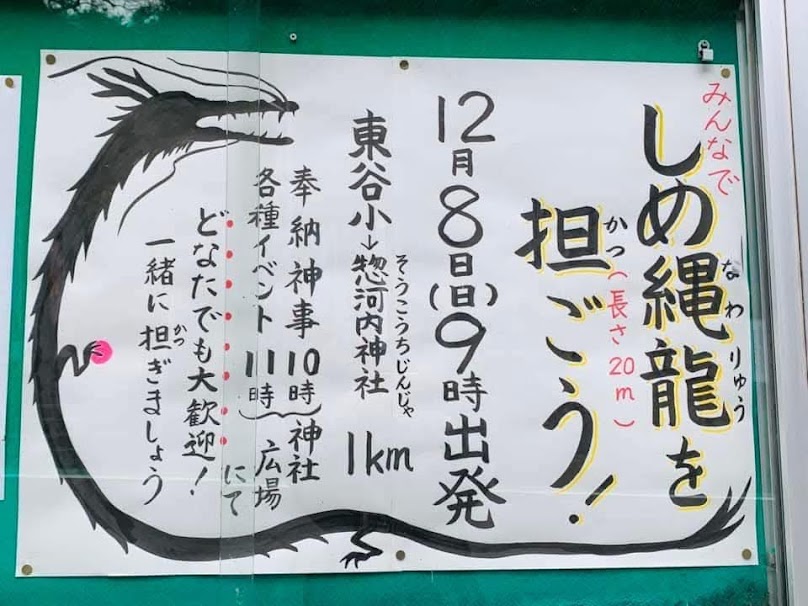 みんなで
しめ縄龍を
なわりゅう
（長さ20m）
担ごう！
かつ
12月8日(日)9時出発
東谷小→惣河内神社 1km
そうこうちじんじゃ
奉納神事10時 神社
各種イベント11時 広場
にて
どなたでも大歓迎！
一緒に担ぎましょう
かつ